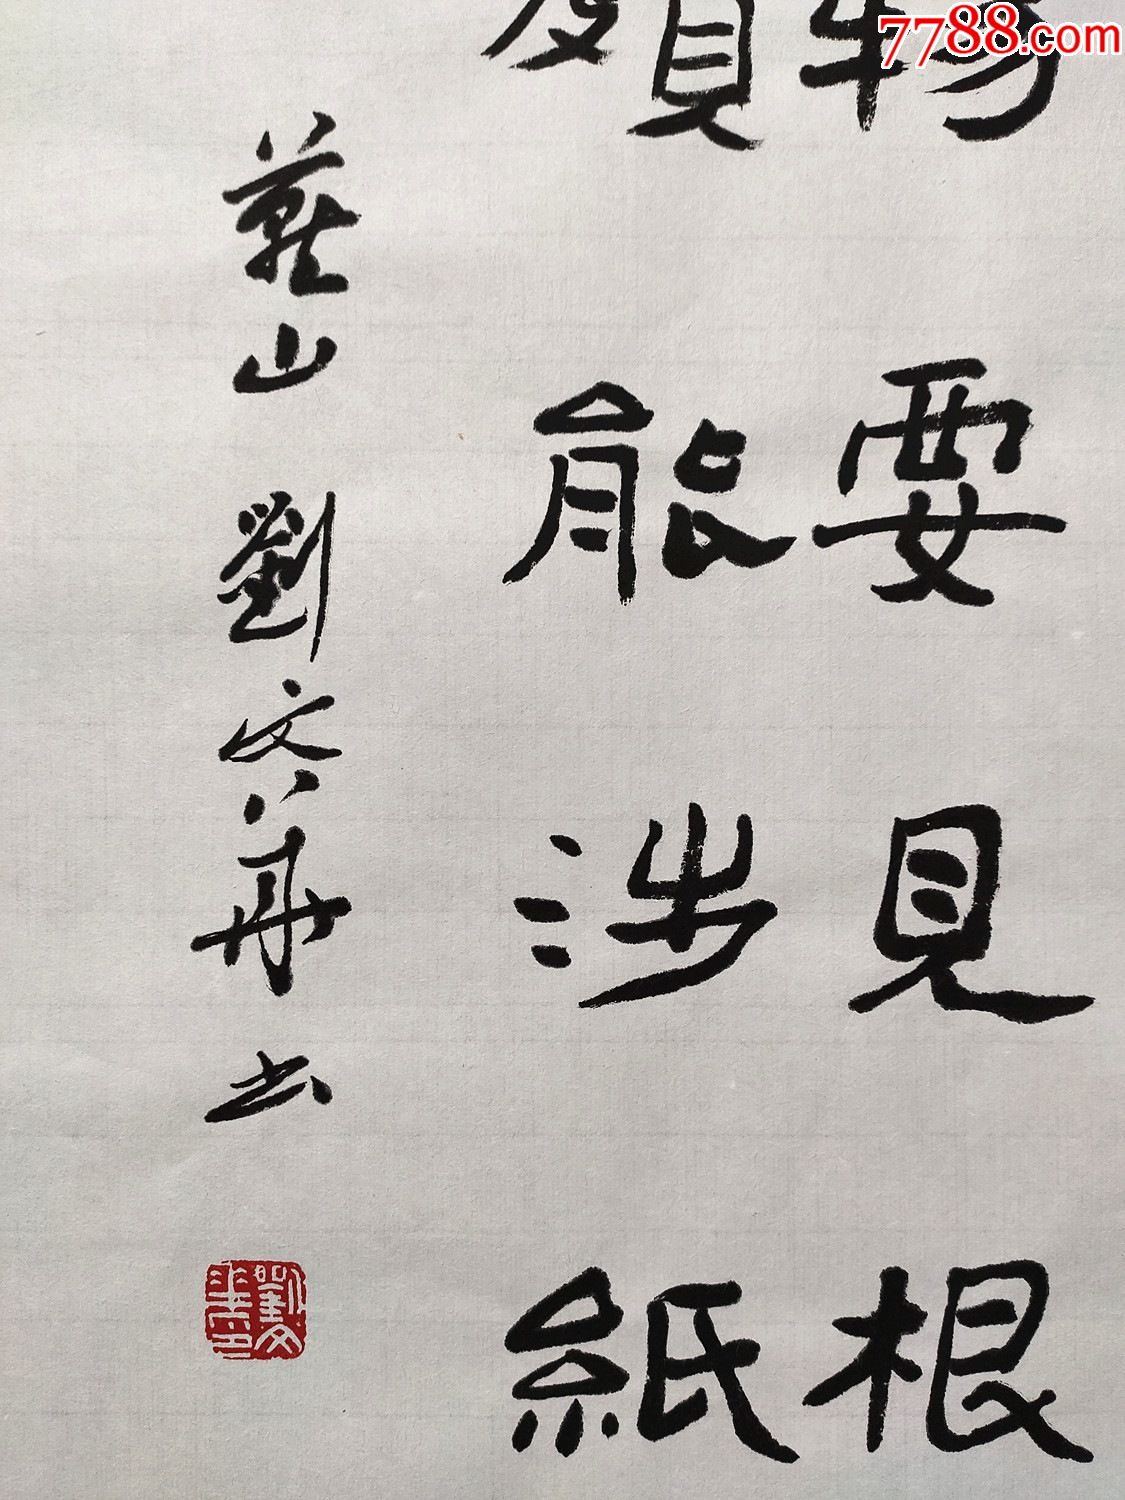 要見根
能涉紙
燕山劉文華書
劉文華印
7788.com